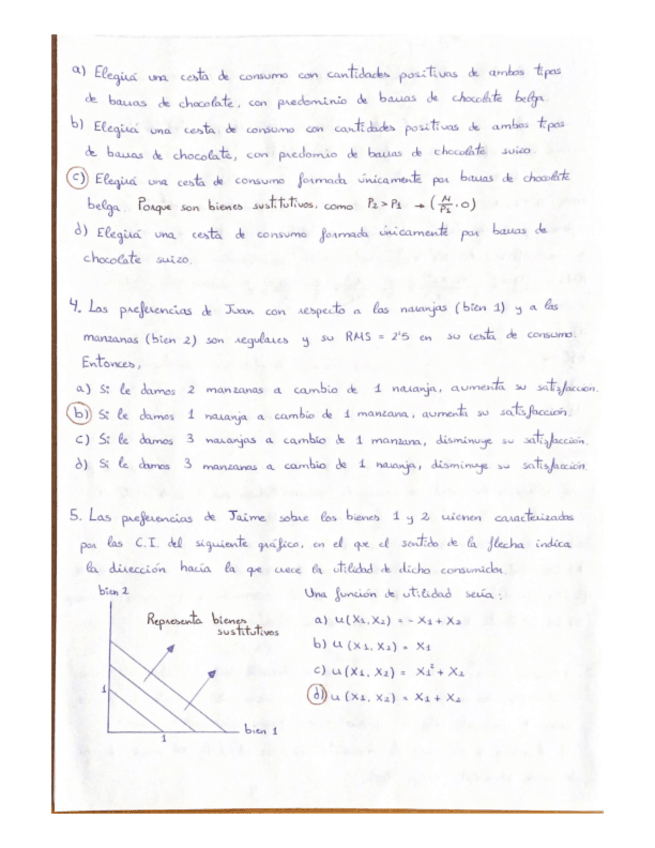 a) Elegirá una cesta de consumo con cantidades positivas de ambos tipos
de barras de chocolate, con predominio de barras de chocolate belga.
b) Elegirá una cesta de consumo con cantidades positivas de ambos tipos
de barras de chocolate, con predomio de barras de chocolate suizo.
c) Elegirá una cesta de consumo formada únicamente por barras de chocolate
belga. Porque son bienes sustitutivos, como P₂ > P₁ → (M/P₁, 0)
d) Elegirá una cesta de consumo formada únicamente por barras de
chocolate suizo.
4. Las preferencias de Juan con respecto a las naranjas (bien 1) y a las
manzanas (bien 2) son regulares y su RMS = 2'5 en su cesta de consumo.
Entonces,
a) Si le damos 2 manzanas a cambio de 1 naranja, aumenta su satisfacción.
b) Si le damos 1 naranja a cambio de 1 manzana, aumenta su satisfacción.
c) Si le damos 3 naranjas a cambio de 1 manzana, disminuye su satisfacción.
d) Si le damos 3 manzanas a cambio de 1 naranja, disminuye su satisfacción.
5. Las preferencias de Jaime sobre los bienes 1 y 2 vienen caracterizadas
por las C.I. del siguiente gráfico, en el que el sentido de la flecha indica
la dirección hacia la que crece la utilidad de dicho consumidor.
bien 2
Representa bienes
sustitutivos
1
1
bien 1
Una función de utilidad sería:
a) u(x₁, x₂) = - x₁ + x₂
b) u(x₁, x₂) = x₁
c) u(x₁, x₂) = x₁² + x₂
d) u(x₁, x₂) = x₁ + x₂